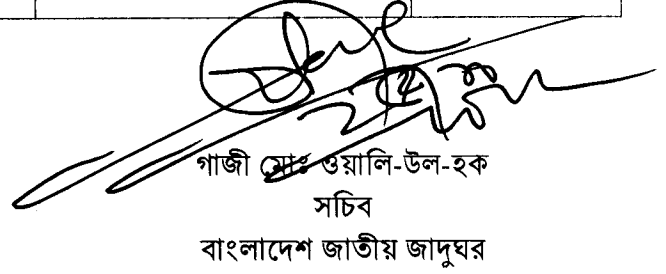 গাজী মোঃ ওয়ালি-উল-হক
সচিব
বাংলাদেশ জাতীয় জাদুঘর